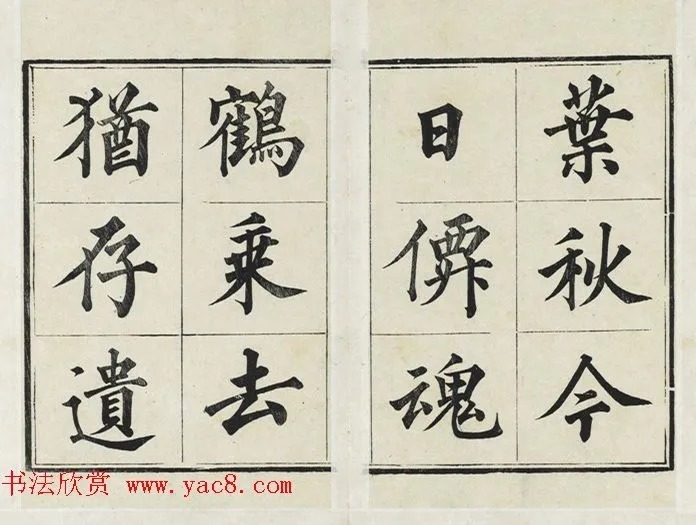 葉秋今
日僊魂
鶴乗去
猶存遺
书法欣赏 www.yac8.com